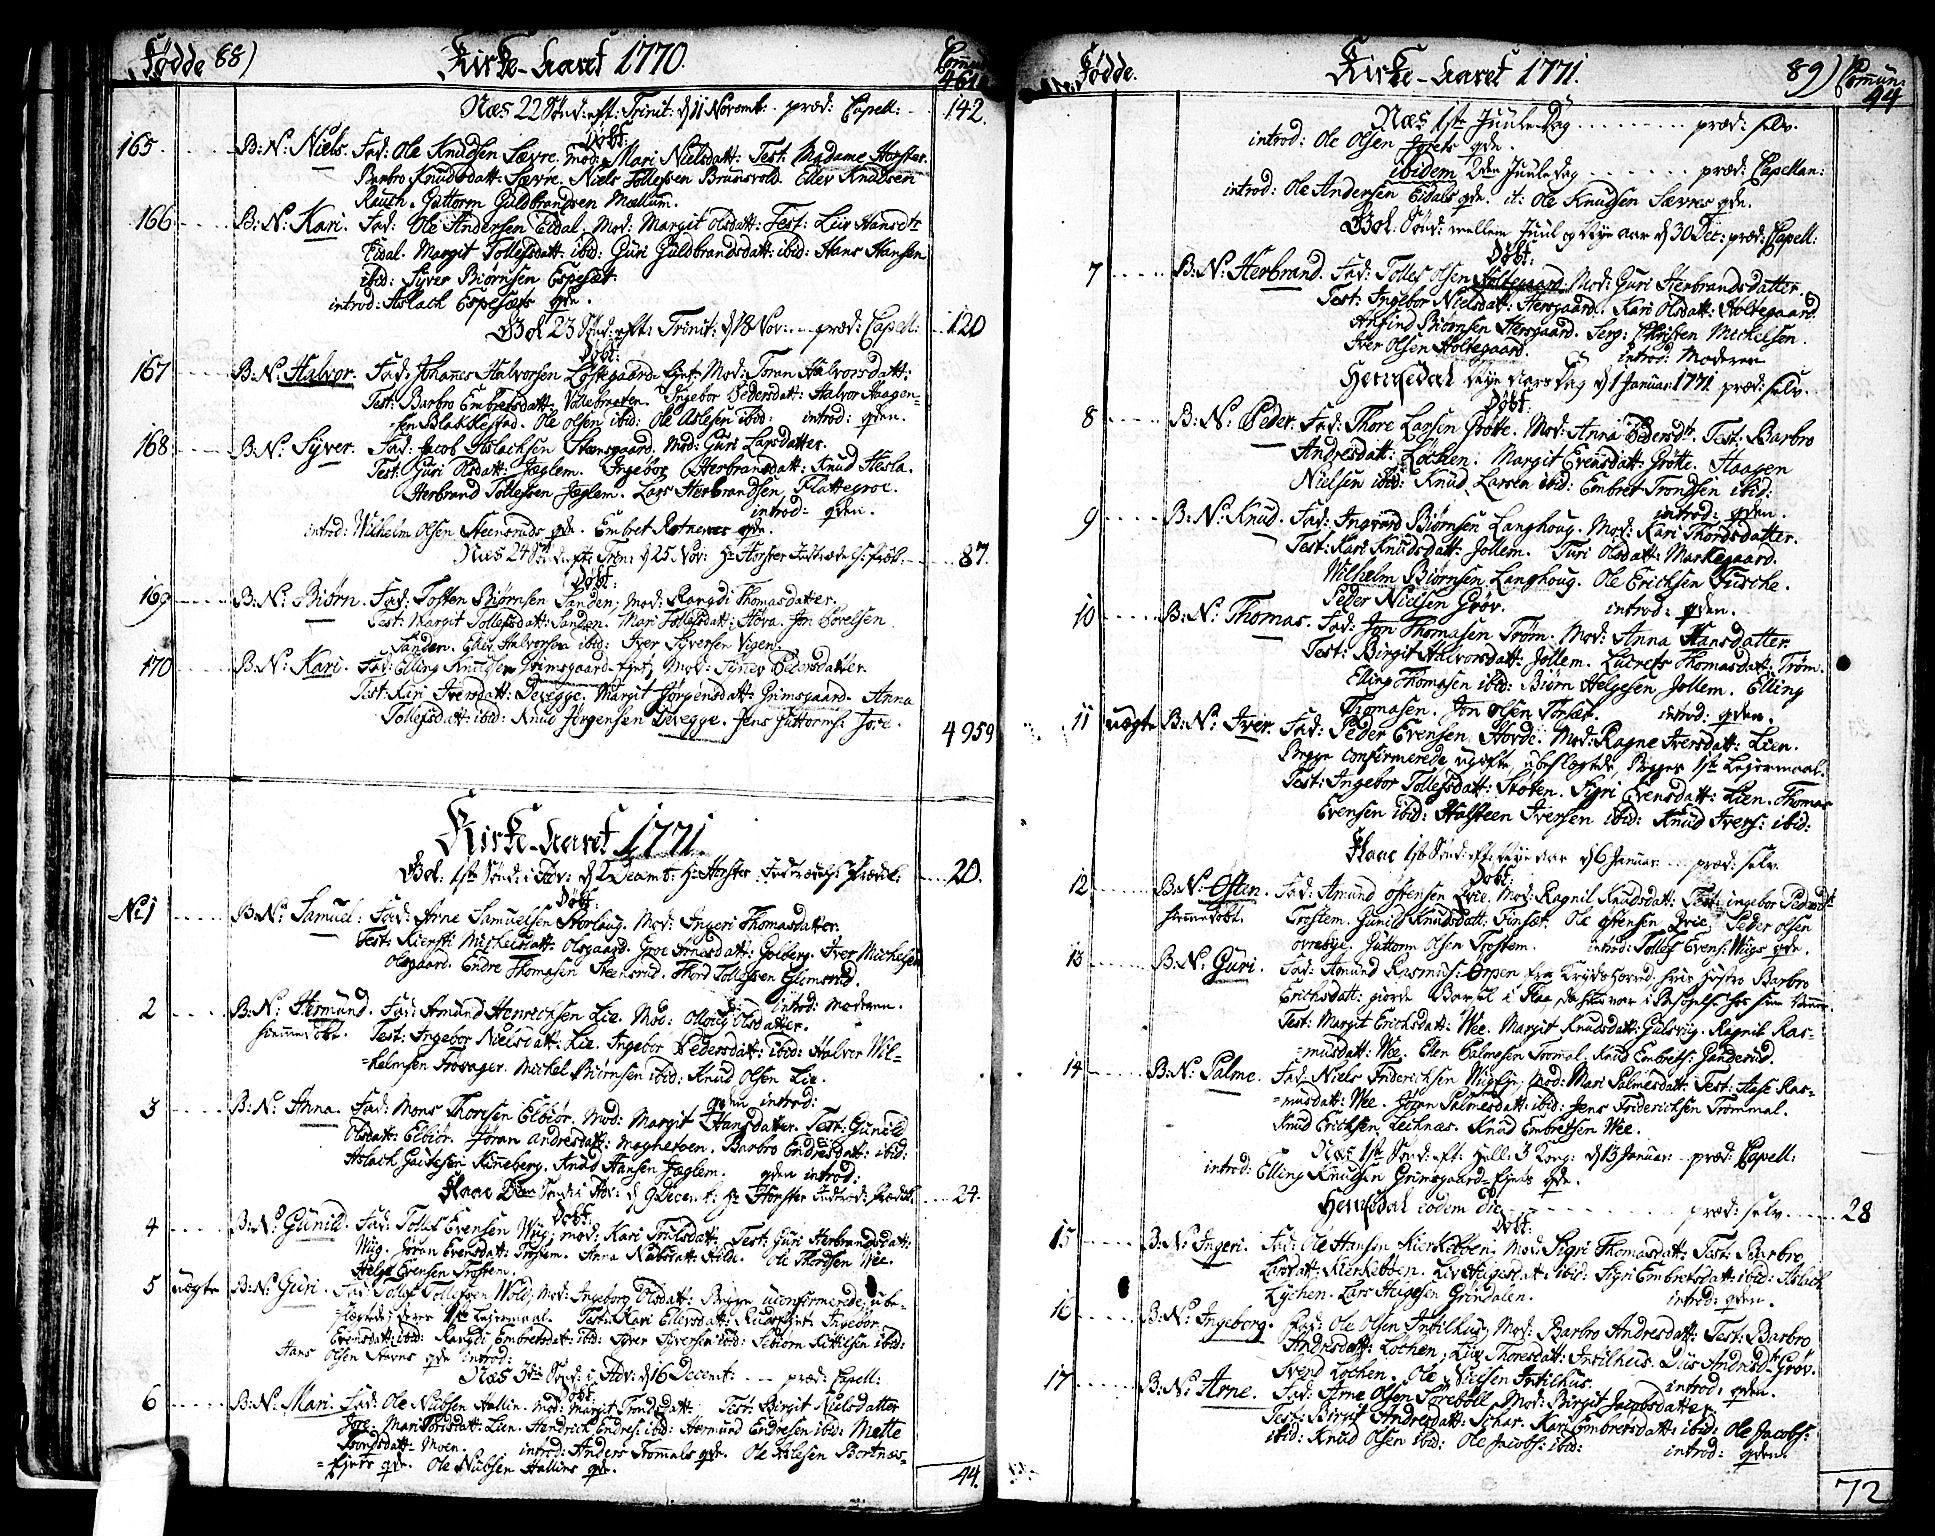 Fødde 88)
Kirke-Aaret 1770.
Næs 22 Sønd: eft: Trinit: d 11 Novemb: præd: Capell: 142.
Døbt:
165 B: N: Niels. Fad: Ole Knudsen Sævre. Mod: Mari Nielsdatt: Test: Madame Horster.
Barbro Knudsdatt: Sævre. Niels Tollefsen Brunsvold. Ellev Knudsen
Rauch. Guttorm Guldbrandsen Mællum.
166 B: N: Kari. Fad: Ole Andersen Eidal. Mod: Margit Olsdatt: Test: Liv Hansdtr
Eidal. Margit Tollefsdatt: ibid: Guri Guldbrandsdatt: ibid: Hans Hansen
ibid: Syver Biørnsen Espeset.
introd: Aslach Espesets qde.
Gol 23 Sønd: eft: Trinit: d 18 Nov: præd: Capell: 120
Døbt:
167 B: N: Halvor. Fad: Johanes Halvorsen Mod: Jøran Halvorsdatt:
Test: Barbro Embretsdatt: Ingebor Pedersdatt: Halvor Haagen-
sen Blakkestad. Ole Olsen ibid: Ole Aslesen ibid: introd: qden.
168 B: N: Syver. Fad: Jacob Aslachsen Mod: Guri Larsdatter.
Test: Guri Olsdatt: Jæglem. Ingebor Herbransdatt: Knud Hesla.
Herbrand Tollefsen Jæglem. Lars Herbrandsen Flattegroe.
introd: qden.
introd: Wilhelm Olsen Steensruds qde. Embret Rotneims qde.
Næs 24 Sønd: eft: Trin: d 25 Nov: Hr Horster 87.
Døbt:
169 B: N: Biørn. Fad: Tosten Biørnsen Sanden; Mod: Rangdi Thomasdatter.
Test: Margit Tollefsdatt: Sanden. Mari Tollefsdatt: Høva. Jon
Sanden. Ellev Halvorsen ibid: Iver Syversen Vigen.
170 B: N: Kari. Fad: Elling Knudsen Grimsgaard-Ejnes; Mod: Pedersdatter.
Test: Kari Iversdatt: Devegge. Margit Jørgensdatt: Grimsgaard. Anna
Tollefsdatt: ibid: Knud Jørgensen Devegge. Jens Guttorms: Jore.
4959
Kirke-Aaret 1771.
Gol. 1ste Sønd: i Adv: d 2 Decemb: Hr Horster 20.
Døbt:
No 1 B: N: Samuel. Fad: Arne Samuelsen Storlaug. Mod: Ingeri Thomasdatter.
Test: Kiersti Michelsdatt: Olsgaard. Groe Arnesdatt: Golberg. Iver Michelsen
Olsgaard. Endre Thomasen Steensrud. Thord Tollefsen
introd: moderen.
2 B: N: Hermund. Fad: Amund Henrichsen Lie. Mod: Olsdatter.
hiemmedøbt. Test: Ingebor Nielsdatt: Lie. Ingebor Pedersdatt: ibid: Halvor Wil-
helmsen Trøvager. Michel Biørnsen ibid: Knud Olsen Lie.
qden introd:
3 B: N: Anna. Fad: Mons Thoresen Elbiør. Mod: Margit Hansdatter. Test: Gunild
Olsdatt: Elbiør. Jøran Andresdatt: Barbro Endresdatt: ibid:
Aslach Gautesen Kineberg. Knud Hansen Jæglem. qden introd:
Flaae 2den Sønd: i Adv: d 9 Decemb: Hr Horster 24.
Døbt:
4 B: N: Gunild. Fad: Tollef Evensen Wiig; Mod: Kari Truelsdatt: Test: Guri Herbrandsdatt:
Wiig. Jøran Evensdatt: Trostem. Anna Nubsdatt: Hilde. Ole Thordsen Wee.
Helge Evensen Trostem.
5 uægte B: N: Guri. Fad: Tollef Tollefsen Wold; Mod: Ingeborg Olsdatt: Begge uconfirmerede, ube-
slegtede; deres 1ste Lejermaal. Test: Kari Ellevsdatt: Ingebor
Evensdatt: ibid: Rangdi Embretsdatt: ibid: Syver Syversen ibid: Kittilsen ibid:
Hans Olsen Stavns qde introd:
Næs 3die Sønd: i Adv: d 16 Decemb: præd: Capell:
Døbt:
6 B: N: Mari. Fad: Ole Nubsen Hallin. Mod: Margit Trondsdatt: Test: Birgit Nielsdatter
Jore. Mari Lien. Hendrich Endres: ibid: Hermund Endresen ibid: Mette
Trondsdatt: Moen. introd: Anders Trommals qde. Ole Aslesen Bortnes-
Ejers qde. Ole Nubsen Hallins qde.
44.
Fødde.
Kirke-Aaret 1771.
89) Comun:
44
Næs 1ste Juule Dag præd: selv.
introd: Ole Olsen qde.
ibidem 2den Juuledag præd: Capellan:
introd: Ole Andersen Eidals qde. it: Ole Knudsen Sævres qde.
Gol. Sønd: mellem Juul og Nye aar d 30 Dec: præd: Capell:
Døbt:
7 B: N: Herbrand. Fad: Tollef Olsen Mod: Guri Herbrandsdatter.
Test: Ingebor Nielsdatt: Hersgaard. Kari Olsdatt: Holtegaard.
Arfind Biørnsen Hersgaard. Serg: Christen Michelsen.
Iver Olsen Holtegaard. introd: Moderen
Hemsedal Nye Aars Dag d 1 Januar: 1771 præd: selv.
Døbt:
8 B: N: Peder. Fad: Thore Larsen Grøtte. Mod: Anna Pedersdtr. Test: Barbro
Andresdatt: Løchen. Margit Evensdatt: Grøtte. Haagen
Nielsen ibid: Knud Larsen ibid: Embret Trondsen ibid:
introd: qden.
9 B: N: Knud. Fad: Ingvard Biørnsen Langhoug. Mod: Kari Thordsdatter.
Test: Kari Knudsdatt: Jollem. Turi Olsdatt: Markegaard.
Wilhelm Biørnsen Langhoug. Ole Erichsen Fusche.
Peder Nielsen Grøv. introd: qden.
10 B: N: Thomas. Fad: Jon Thomasen Trøm. Mod: Anna Hansdatter.
Test: Birgit Halvorsdatt: Jollem. Lucrets Thomasdatt: Trøm.
Elling Thomasen ibid: Biørn Helgesen Jollem. Elling
Thomasen. Jon Olsen Torset. introd: qden.
11 uægte B: N: Iver. Fad: Peder Evensen Hovde. Mod: Ragne Iversdatt: Lien.
Begge confirmerede, ugifte, ubeslegtede, Begges 1ste Lejermaal.
Test: Ingebor Tollefsdatt: Støten. Sigri Evensdatt: Lien. Thomas
Evensen ibid: Halsteen Iversen ibid: Knud Ivers: ibid:
Flaae 1ste Sønd: eft: Nye aar d 6 Januar: præd: selv.
Døbt:
12 B: N: Østen. Fad: Amund Østensen Mod: Ragnil Knudsdatt: Test: Ingebor Pedersdtr
hiemmedøbt. Trostem. Gunild Knudsdatt: Ole Østensen Peder Olsen
Guttorm Olsen Trostem. introd: Tollef Evens: Wiigs qde.
13 B: N: Guri. Fad: Amund Rasmus: Ørpen fra Krydsherred, hvis Hustro Barbro
Erichsdatt: giorde Barsel i Flaae, da hun var i
Test: Margit Erichsdatt: Wee. Margit Knudsdatt: Gulsvig. Ragnil Ras-
musdatt: Wee. Elen Palmesen Trommal. Knud Embrets: Ganderud.
14 B: N: Palme. Fad: Niels Friderichsen Mod: Mari Palmesdatt: Test: Aase Ras-
musdatt: Wee. Jøran Palmesdatt: ibid: Jens Friderichsen Trommal.
Knud Erichsen Leiknæs. Knud Embretsen Wee.
Næs 1ste Sønd: eft: Hell: 3 Kong: d 13 Januar: præd: Capell:
introd: Elling Knudsen Grimsgaard-Ejnes qde.
Hemsedal eodem die præd: selv 28
Døbt:
15 B: N: Ingeri. Fad: Ole Hansen Kierkebøen; Mod: Sigri Thomasdatt: Test: Barbro
Larsdatt: Kierkebøen. Liv Helgesdatt: ibid: Sigri Embretsdatt: ibid: Aslach
Lychen. Lars Helgesen Grøndalen. introd: qden.
16 B: N: Ingeborg. Fad: Ole Olsen Intilhus; Mod: Barbro Andresdatt: Test: Barbro
Andresdatt: Løchen; Liv Thoresdatt: Intilhus. Andresdtr Grøv.
Svend Løchen. Ole Nielsen Intilhus. introd: qden.
17 B: N: Arne. Fad: Arne Olsen Mod: Birgit Jacobsdatter.
Test: Birgit Andresdatt: Kari Embretsdatt: ibid: Ole Jacobs:
ibid: Knud Olsen ibid: Ole Jacobs: ibid: introd: qden.
72